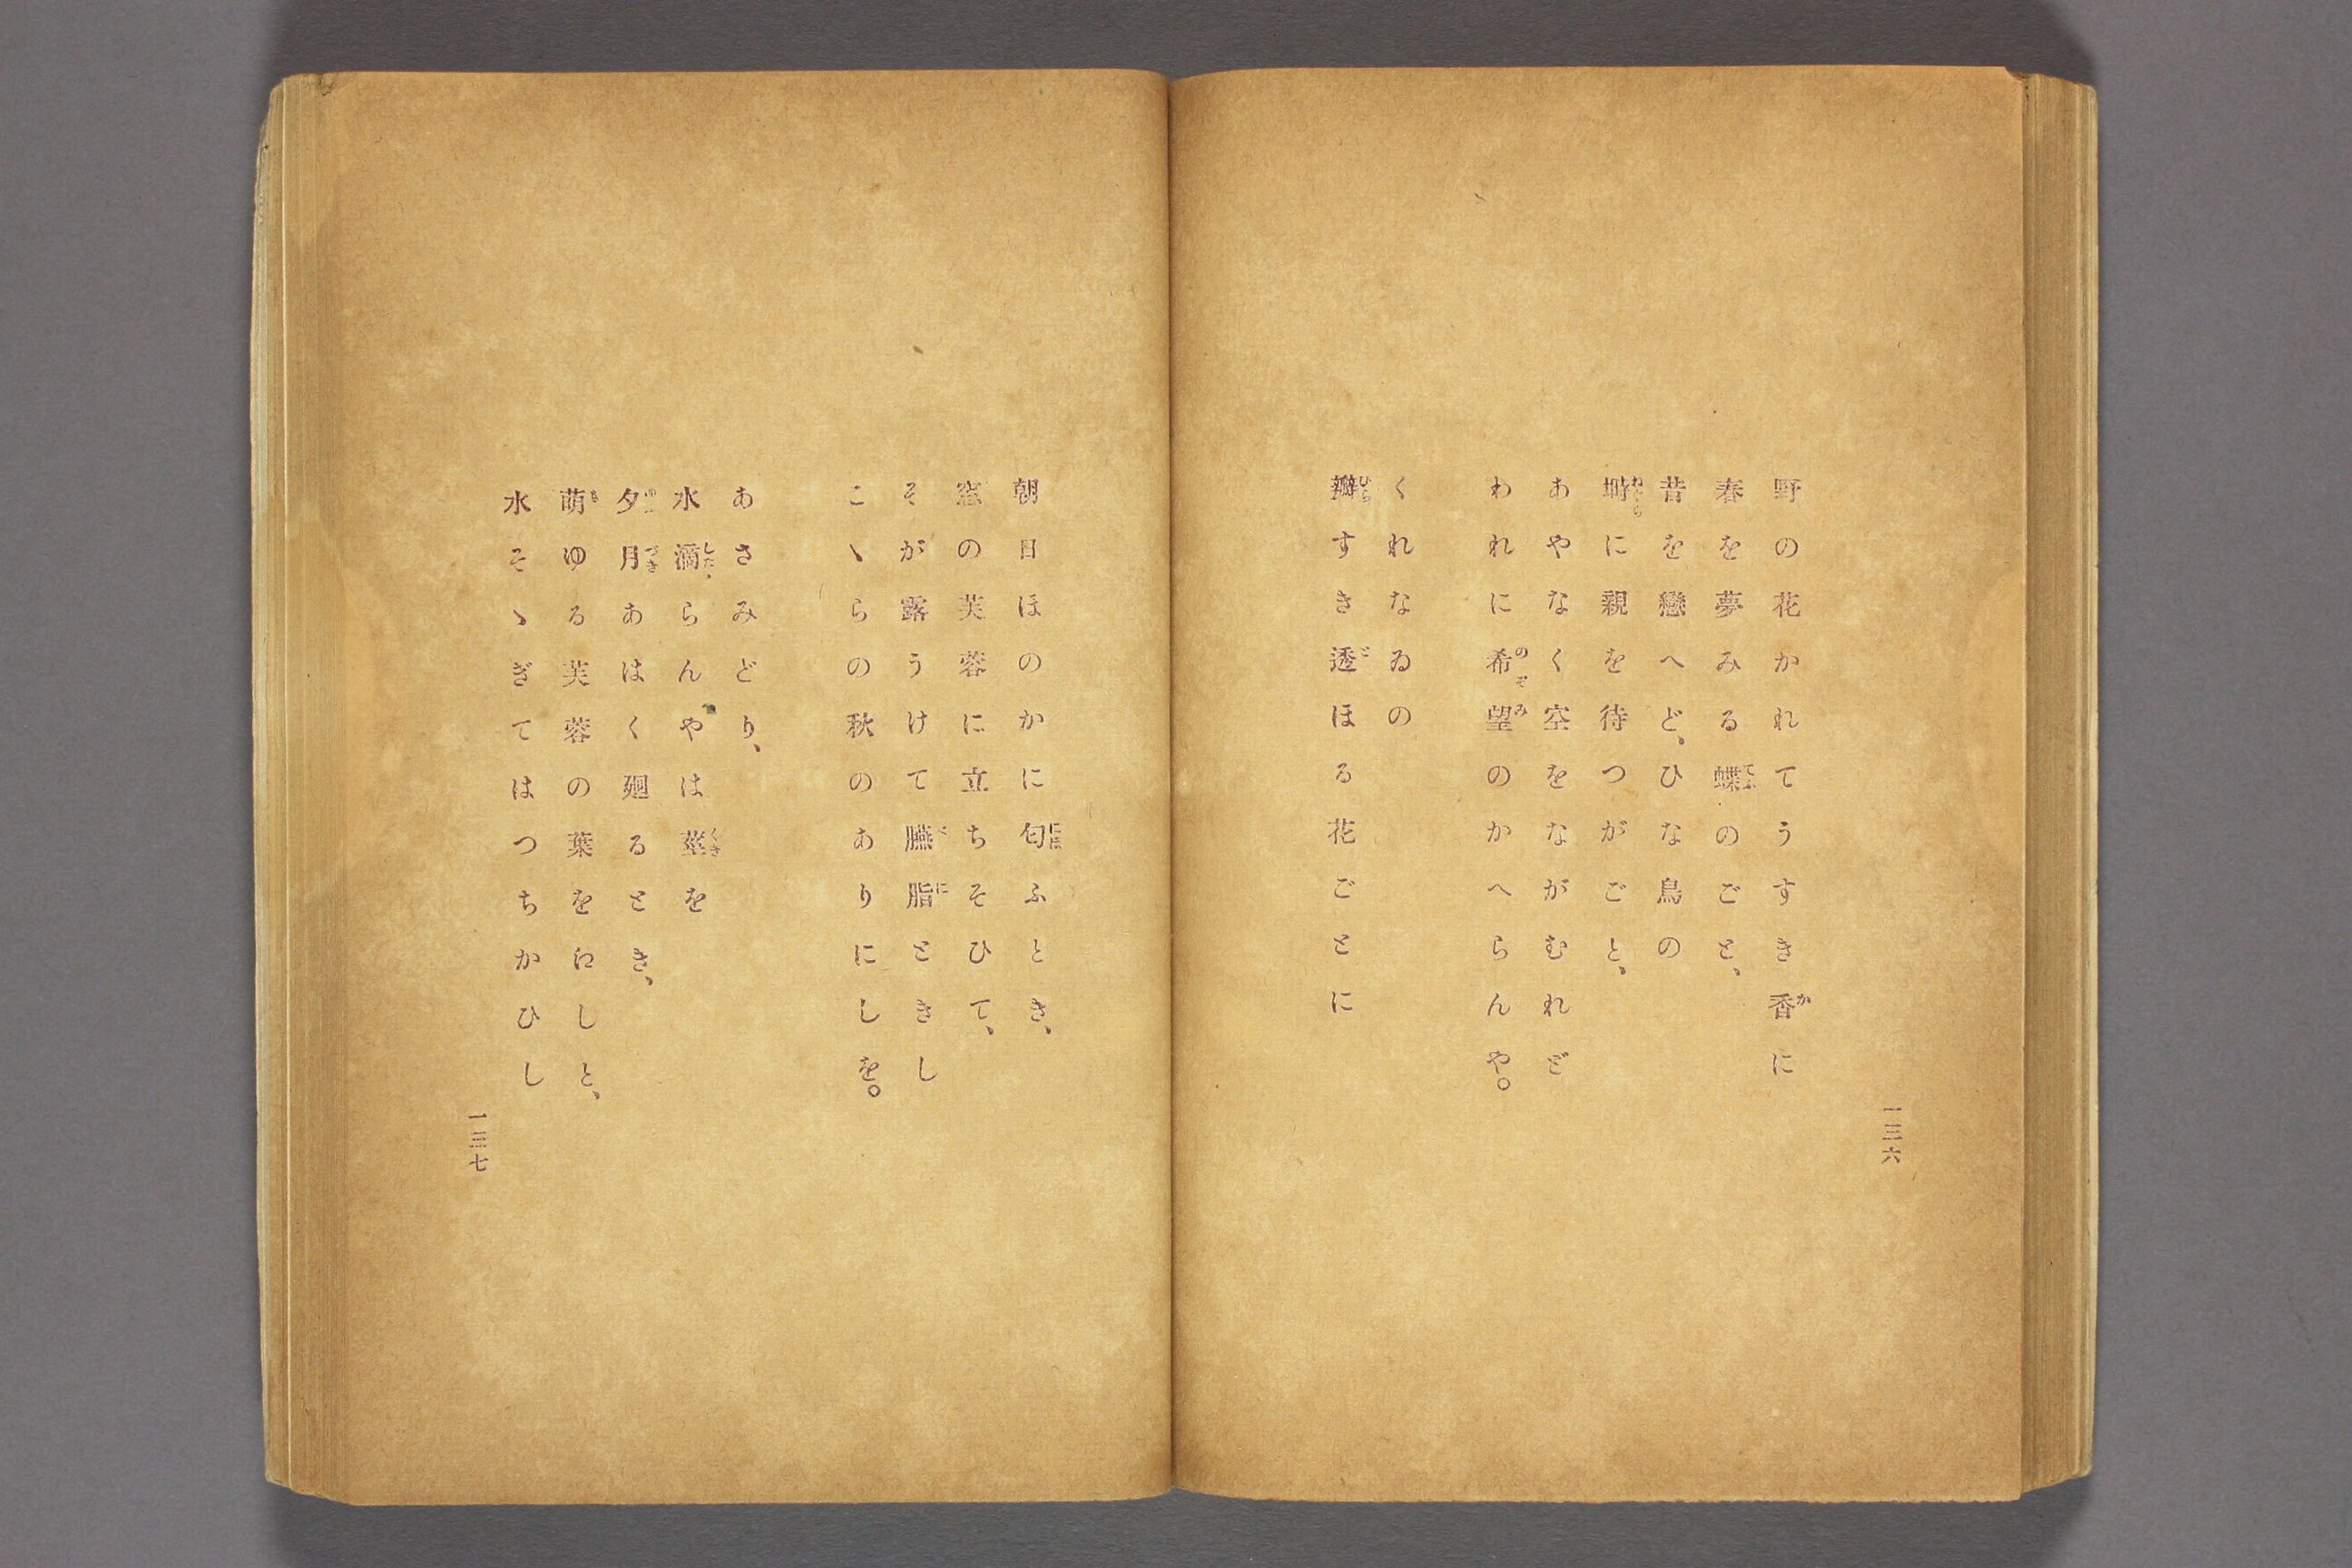 野の花かれてうすき香に
春を夢みる蝶のごと、
昔を戀へど、ひな鳥の
塒に親を待つがごと、
あやなく空をながむれど
われに希望のかへらんや。
くれなゐの
瓣すき透ほる花ごとに
一三六
朝日ほのかに匂ふとき、
窓の芙蓉に立ちそひて、
そが露うけて臙脂ときし
こゝらの秋のありにしを。
あさみどり、
水滴らんやは莖を
夕月あはく廻るとき、
萌ゆる芙蓉の葉をわしと、
水そゝぎてはつちかひし
一三七